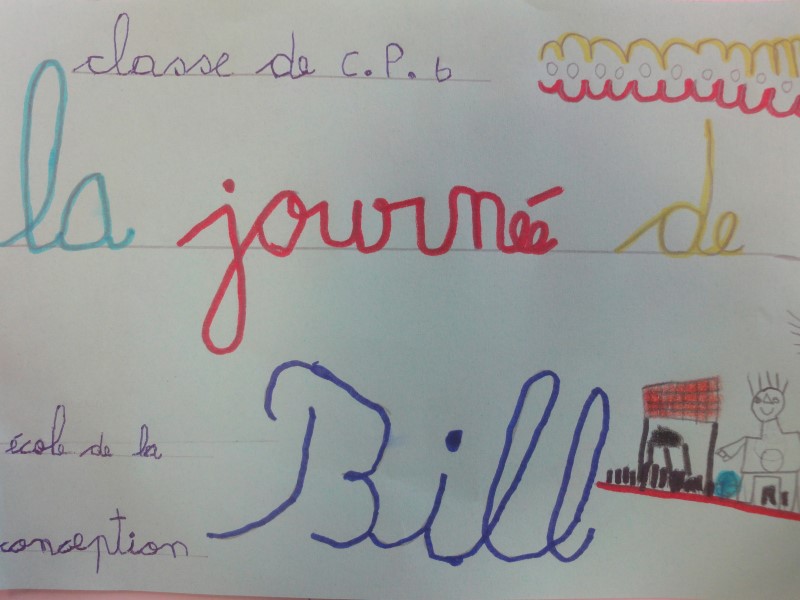 classe de C.P.b
la journée de
Bill
école de la
conception